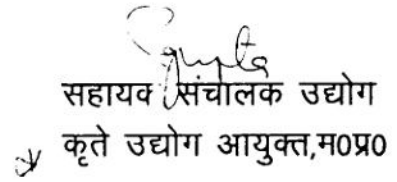 Gupta
सहायक संचालक उद्योग
कृते उद्योग आयुक्त,म0प्र0